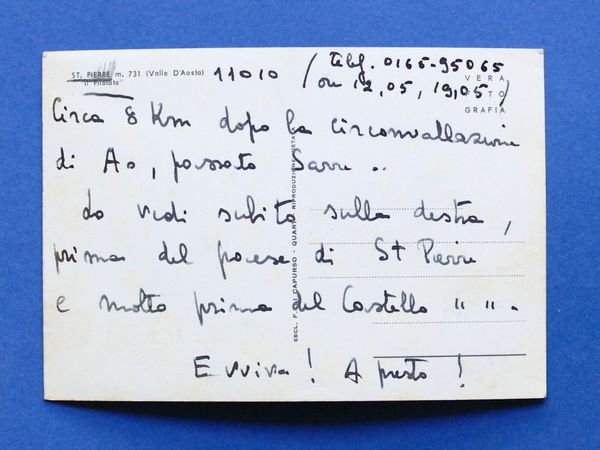 ST. PIERRE m. 731 (Valle D'Aosta) 11010
"Il Pilotato"
(telef. 0165-95065
ore 12,05, 19,05)
VERA
FOTO
GRAFIA
Circa 8 Km dopo la circonvallazione
di Ao, passato Sarre ..
Lo vedi subito sulla destra,
prima del paese di St Pierre
e molto prima del Castello " " .
Evviva! A presto!
ESCL. F. DI CAPURSO - QUART. RIPRODUZIONE VIETATA